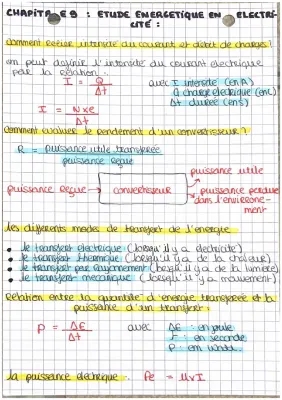 CHAPITRE 9 : ETUDE ENERGETIQUE EN ELECTRI-
CITÉ :
Comment relier intensité du courant et débit de charges?
on peut définir l'intensité du courant électrique
par la relation :
I = Q / Δt
avec I intensité (en A)
Q charge électrique (en C)
Δt durée (en s)
I = N x e / Δt
Comment évaluer le rendement d'un convertisseur?
R = puissance utile transférée / puissance reçue
puissance utile
puissance reçue → convertisseur → puissance perdue
dans l'environne-
ment
les différents modes de transfert de l'énergie
• le transfert électrique (lorsqu'il y a électricité)
• le transfert thermique (lorsqu'il y a de la chaleur)
• le transfert par rayonnement (lorsqu'il y a de la lumière)
• le transfert mécanique (lorsqu'il y a mouvement)
Relation entre la quantité d'énergie transférée et la
puissance d'un transfert :
P = ΔE / Δt
avec ΔE : en joule
: en seconde
P : en watt
la puissance électrique : Pe = U x I